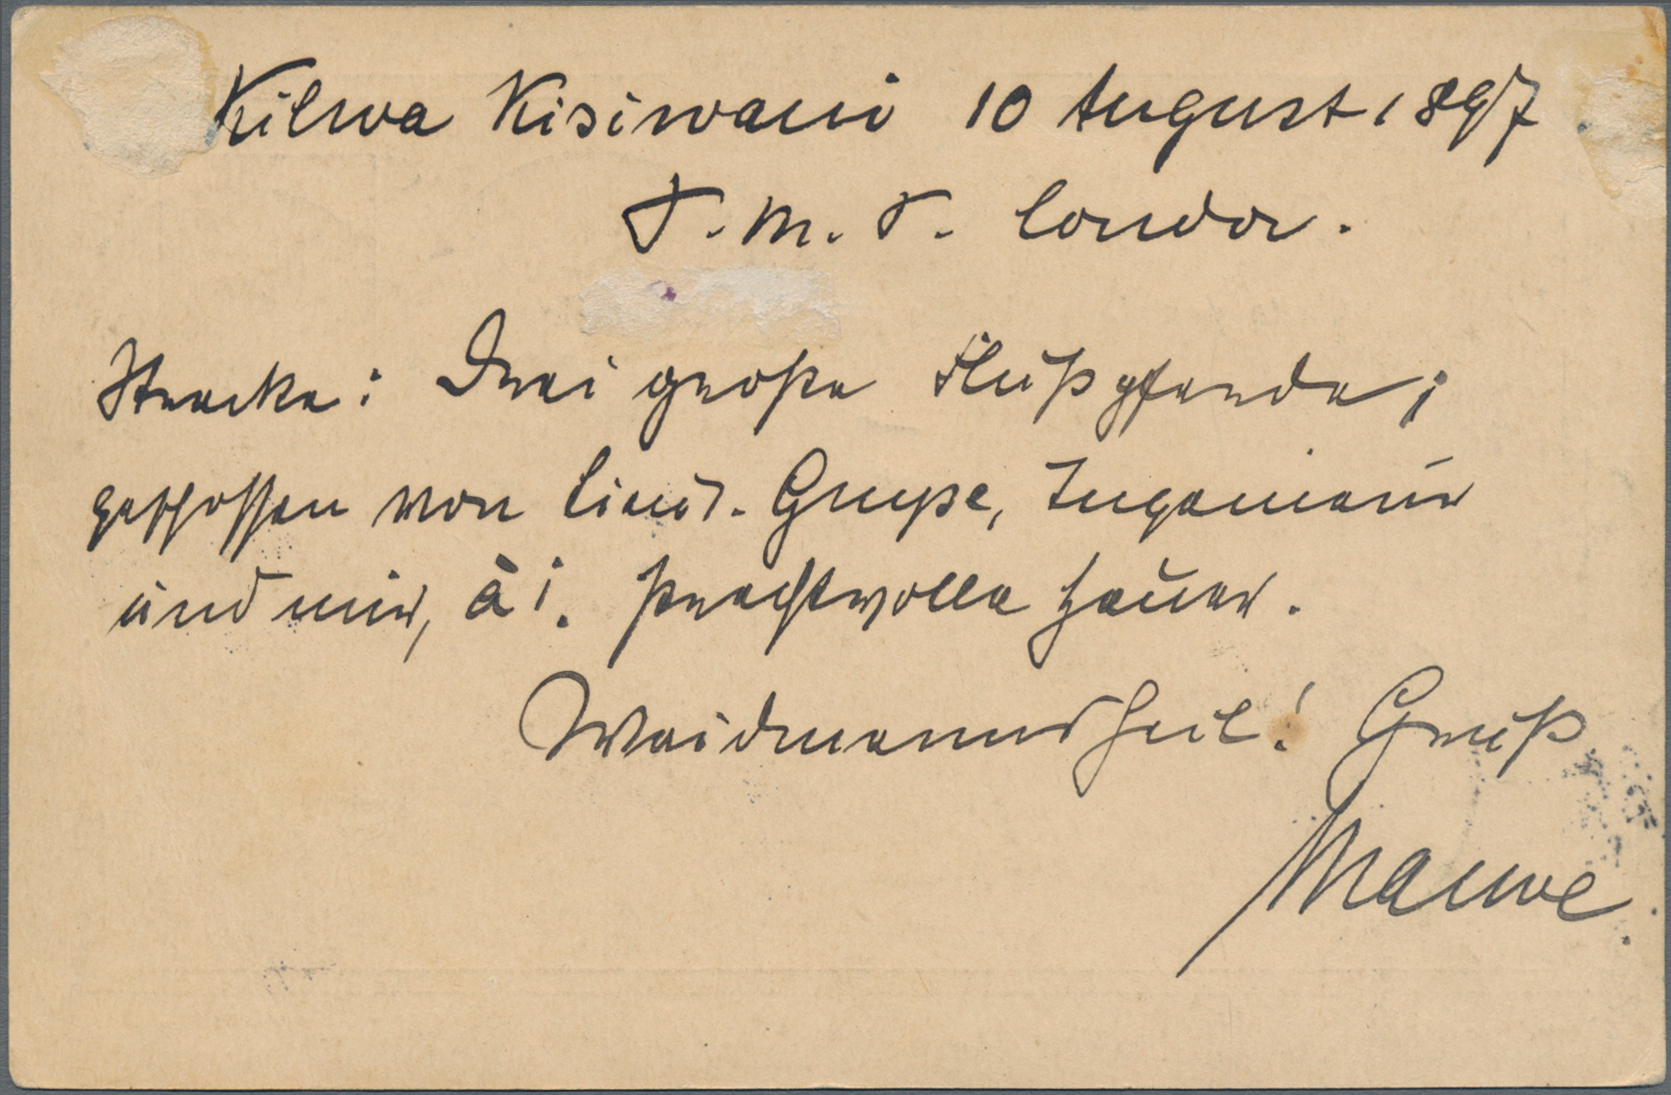 Kilwa Kisiwani 10 August 1897
S. M. S. Condor.
Strecke: Drei große Flußpferde;
geschossen von Lieut. Gruße, Ingenieur
und mir, à 1. Prachtvolle Hauer.
Waidmannsheil! Gruß
Mauve